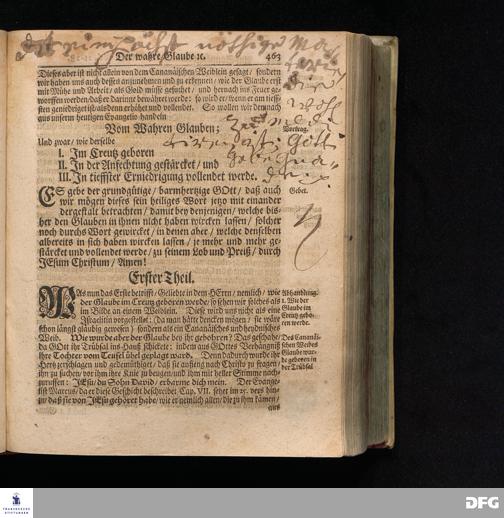 Der wahre Glaube ꝛc. 463
Dieses aber ist nicht allein von dem Cananäischen Weiblein gesagt / sondern
wir haben uns auch dessen anzunehmen und zu erkennen / wie der Glaube erst
mit Mühe und Arbeit / als Gold müsse gesucht / und hernach ins Feuer ge-
worffen werden / daß er darinne bewähret werde: so wird er / wenn er am tieff-
sten geniedriget ist / als denn erhöhet und vollendet. So wollen wir demnach
aus unserm heutigen Evangelio handeln
Vom Wahren Glauben;
Vortrag.
Und zwar / wie derselbe
I. Im Creutz geboren
II. In der Anfechtung gestärcket / und
III. In tieffster Erniedrigung vollendet werde.
Gebet.
ES gebe der grundgütige / barmhertzige GOtt / daß auch
wir mögen dieses sein heiliges Wort jetzo mit einander
dergestalt betrachten / damit bey denjenigen / welche bis-
her den Glauben in ihnen nicht haben wircken lassen / solcher
noch durchs Wort gewircket / in denen aber / welche denselben
albereits in sich haben wircken lassen / je mehr und mehr ge-
stärcket und vollendet werde / zu seinem Lob und Preiß / durch
JEsum Christum / Amen!
Erster Theil.
WAs nun das Erste betrifft / Geliebte in dem HErrn / nemlich / wie
der Glaube im Creutz geboren werde: so sehen wir solches als
im Bilde an einem Weiblein. Diese wird uns nicht als eine
Israelitin vorgestellet: (da man hätte dencken mögen / sie wäre
schon längst gläubig gewesen) sondern als ein Cananäisches und heydnisches
Weib. Wie wurde aber der Glaube bey ihr gebohren? Das geschahe /
da GOtt ihr Trübsal ins Hauß schickete: indem aus GOttes Verhängniß
ihre Tochter vom Teufel übel geplaget ward. Denn dadurch wurde ihr
Hertz zerschlagen und gedemüthiget / daß sie anfieng nach Christo zu fragen /
ihn zu suchen / vor ihm ihre Knie zu beugen / und ihm mit heller Stimme nach-
zuruffen: JEsu / du Sohn David / erbarme dich mein. Der Evange-
list Marcus / da er diese Geschicht beschreibet Cap. VII. setzet im 25. vers hin-
zu / daß sie von JEsu gehöret habe / wie er nemlich allen / die zu ihm kämen /
aus
Abhandlung.
I. Wie der
Glaube im
Creutz gebo-
ren werde.
Des Cananäi-
schen Weibes
Glaube wur-
de geboren in
der Trübsal
FRANCKESCHE
STIFTUNGEN
DFG